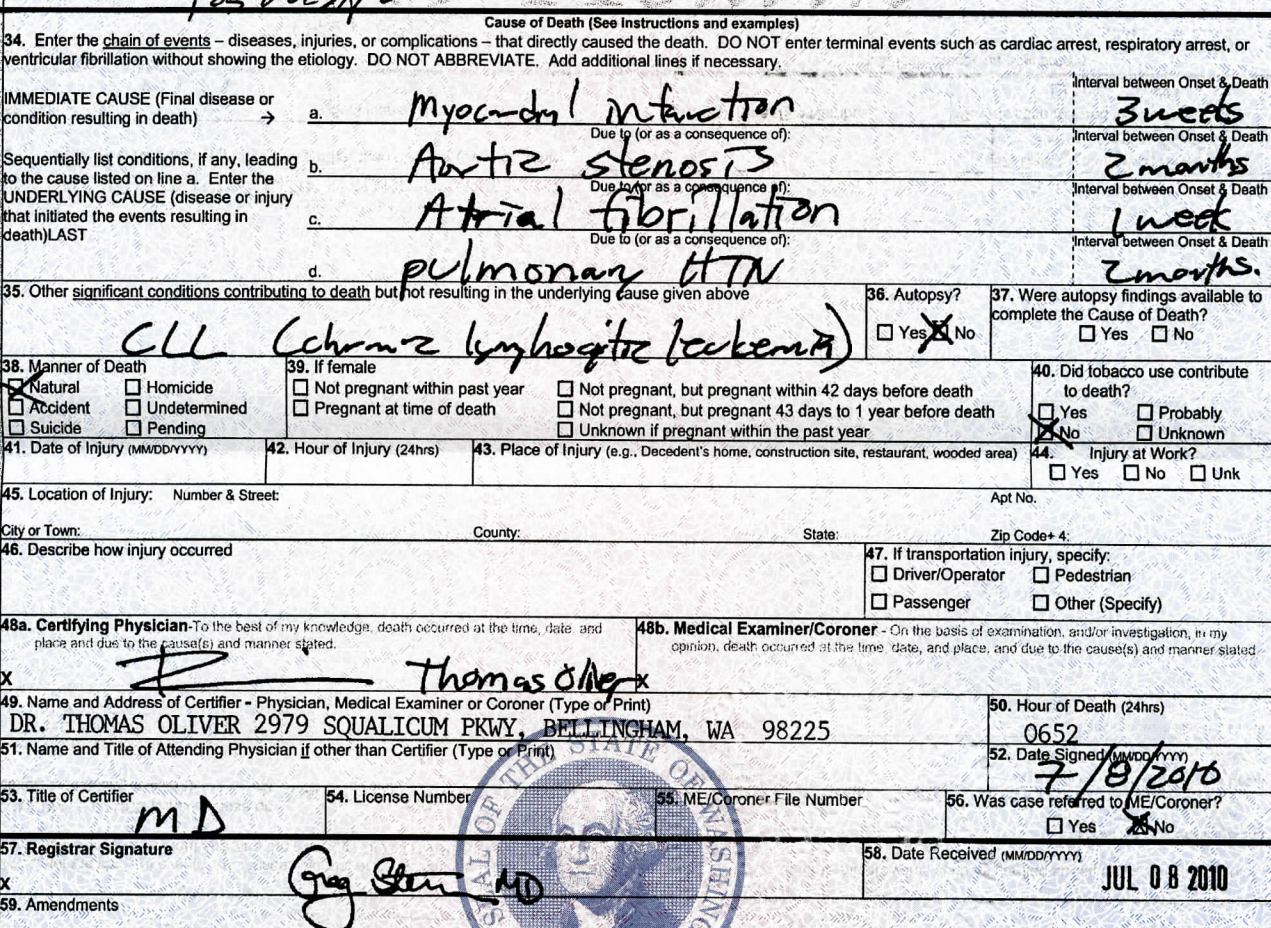 Cause of Death (See instructions and examples)
34. Enter the chain of events – diseases, injuries, or complications – that directly caused the death. DO NOT enter terminal events such as cardiac arrest, respiratory arrest, or
ventricular fibrillation without showing the etiology. DO NOT ABBREVIATE. Add additional lines if necessary.
Interval between Onset & Death
IMMEDIATE CAUSE (Final disease or
condition resulting in death) →
a. Myocardial infarction 3 weeks
Due to (or as a consequence of): Interval between Onset & Death
Sequentially list conditions, if any, leading
to the cause listed on line a. Enter the
UNDERLYING CAUSE (disease or injury
that initiated the events resulting in
death)LAST
b. Aortic stenosis 2 months
Due to (or as a consequence of): Interval between Onset & Death
c. Atrial fibrillation 1 week
Due to (or as a consequence of): Interval between Onset & Death
d. pulmonary HTN 2 months.
35. Other significant conditions contributing to death but not resulting in the underlying cause given above
CLL (chronic lymphocytic leukemia)
36. Autopsy?
☐ Yes ☒ No
37. Were autopsy findings available to
complete the Cause of Death?
☐ Yes ☐ No
38. Manner of Death
☒ Natural ☐ Homicide
☐ Accident ☐ Undetermined
☐ Suicide ☐ Pending
39. If female
☐ Not pregnant within past year ☐ Not pregnant, but pregnant within 42 days before death
☐ Pregnant at time of death ☐ Not pregnant, but pregnant 43 days to 1 year before death
☐ Unknown if pregnant within the past year
40. Did tobacco use contribute
to death?
☐ Yes ☐ Probably
☒ No ☐ Unknown
41. Date of Injury (MM/DD/YYYY) 42. Hour of Injury (24hrs) 43. Place of Injury (e.g., Decedent's home, construction site, restaurant, wooded area) 44. Injury at Work?
☐ Yes ☐ No ☐ Unk
45. Location of Injury: Number & Street: Apt No.
City or Town: County: State: Zip Code+ 4:
46. Describe how injury occurred
47. If transportation injury, specify:
☐ Driver/Operator ☐ Pedestrian
☐ Passenger ☐ Other (Specify)
48a. Certifying Physician-To the best of my knowledge, death occurred at the time, date, and
place and due to the cause(s) and manner stated.
X Thomas Oliver
48b. Medical Examiner/Coroner - On the basis of examination, and/or investigation, in my
opinion, death occurred at the time, date, and place, and due to the cause(s) and manner stated
X
49. Name and Address of Certifier - Physician, Medical Examiner or Coroner (Type or Print)
DR. THOMAS OLIVER 2979 SQUALICUM PKWY, BELLINGHAM, WA 98225
50. Hour of Death (24hrs)
0652
51. Name and Title of Attending Physician if other than Certifier (Type or Print)
52. Date Signed (MM/DD/YYYY)
7/8/2010
53. Title of Certifier
MD
54. License Number
55. ME/Coroner File Number
56. Was case referred to ME/Coroner?
☐ Yes ☒ No
57. Registrar Signature
X Greg Stern MD
58. Date Received (MM/DD/YYYY)
JUL 08 2010
59. Amendments
SEAL OF THE STATE OF WASHING